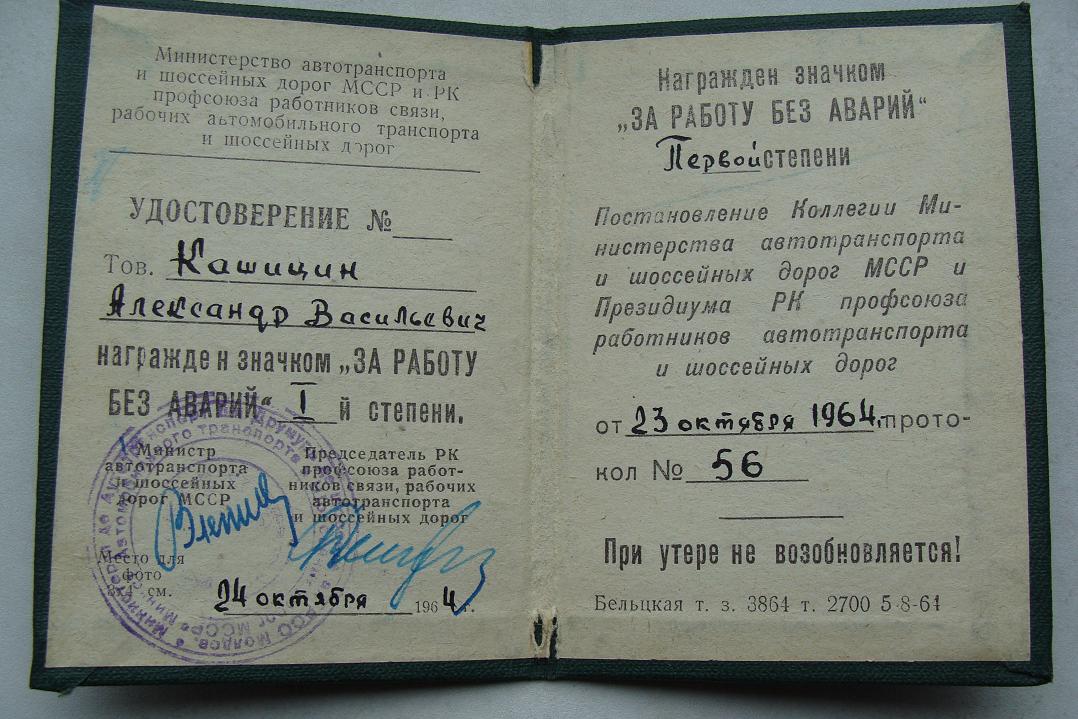 Министерство автотранспорта
и шоссейных дорог МССР и РК
профсоюза работников связи,
рабочих автомобильного транспорта
и шоссейных дорог
УДОСТОВЕРЕНИЕ №
Тов. Кашицин
Александр Васильевич
награжден значком „ЗА РАБОТУ
БЕЗ АВАРИЙ“ I й степени.
Министр
автотранспорта
и шоссейных
дорог МССР
Председатель РК
профсоюза работ-
ников связи, рабочих
автотранспорта
и шоссейных дорог
Место для
фото
3х4 см.
24 октября 1964 г.
Награжден значком
„ЗА РАБОТУ БЕЗ АВАРИЙ“
Первой степени
Постановление Коллегии Ми-
нистерства автотранспорта
и шоссейных дорог МССР и
Президиума РК профсоюза
работников автотранспорта
и шоссейных дорог
от 23 октября 1964. прото-
кол № 56
При утере не возобновляется!
Бельцкая т. з. 3864 т. 2700 5-8-64